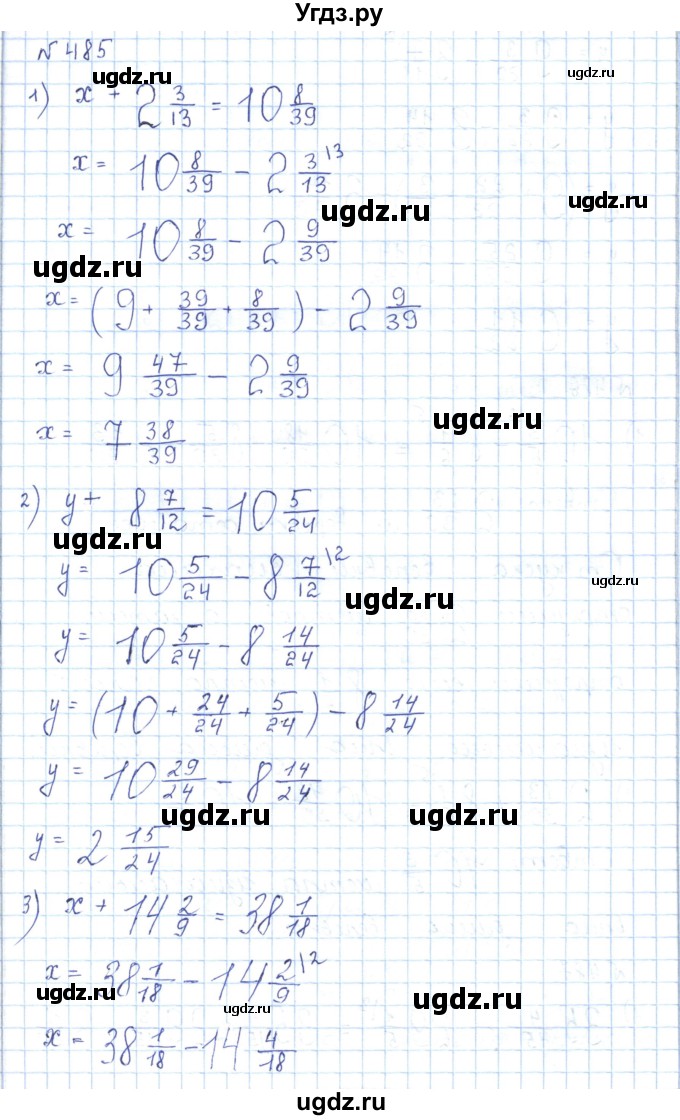 Угдз.ру
№ 485
ugdz.ru
ugdz.ru
1) x + 2 3/13 = 10 8/39
x = 10 8/39 - 2 3/13 |3
ugdz.ru
ugdz.ru
x = 10 8/39 - 2 9/39
ugdz.ru
x = (9 + 39/39 + 8/39) - 2 9/39
x = 9 47/39 - 2 9/39
ugdz.ru
x = 7 38/39
2) y + 8 7/12 = 10 5/24
ugdz.ru
y = 10 5/24 - 8 7/12 |2
ugdz.ru
ugdz.ru
y = 10 5/24 - 8 14/24
y = (10 + 24/24 + 5/24) - 8 14/24
y = 10 29/24 - 8 14/24
ugdz.ru
ugdz.ru
y = 2 15/24
3) x + 14 2/9 = 38 1/18
x = 38 1/18 - 14 2/9 |2
ugdz.ru
ugdz.ru
ugdz.ru
x = 38 1/18 - 14 4/18
ugdz.ru
ugdz.ru